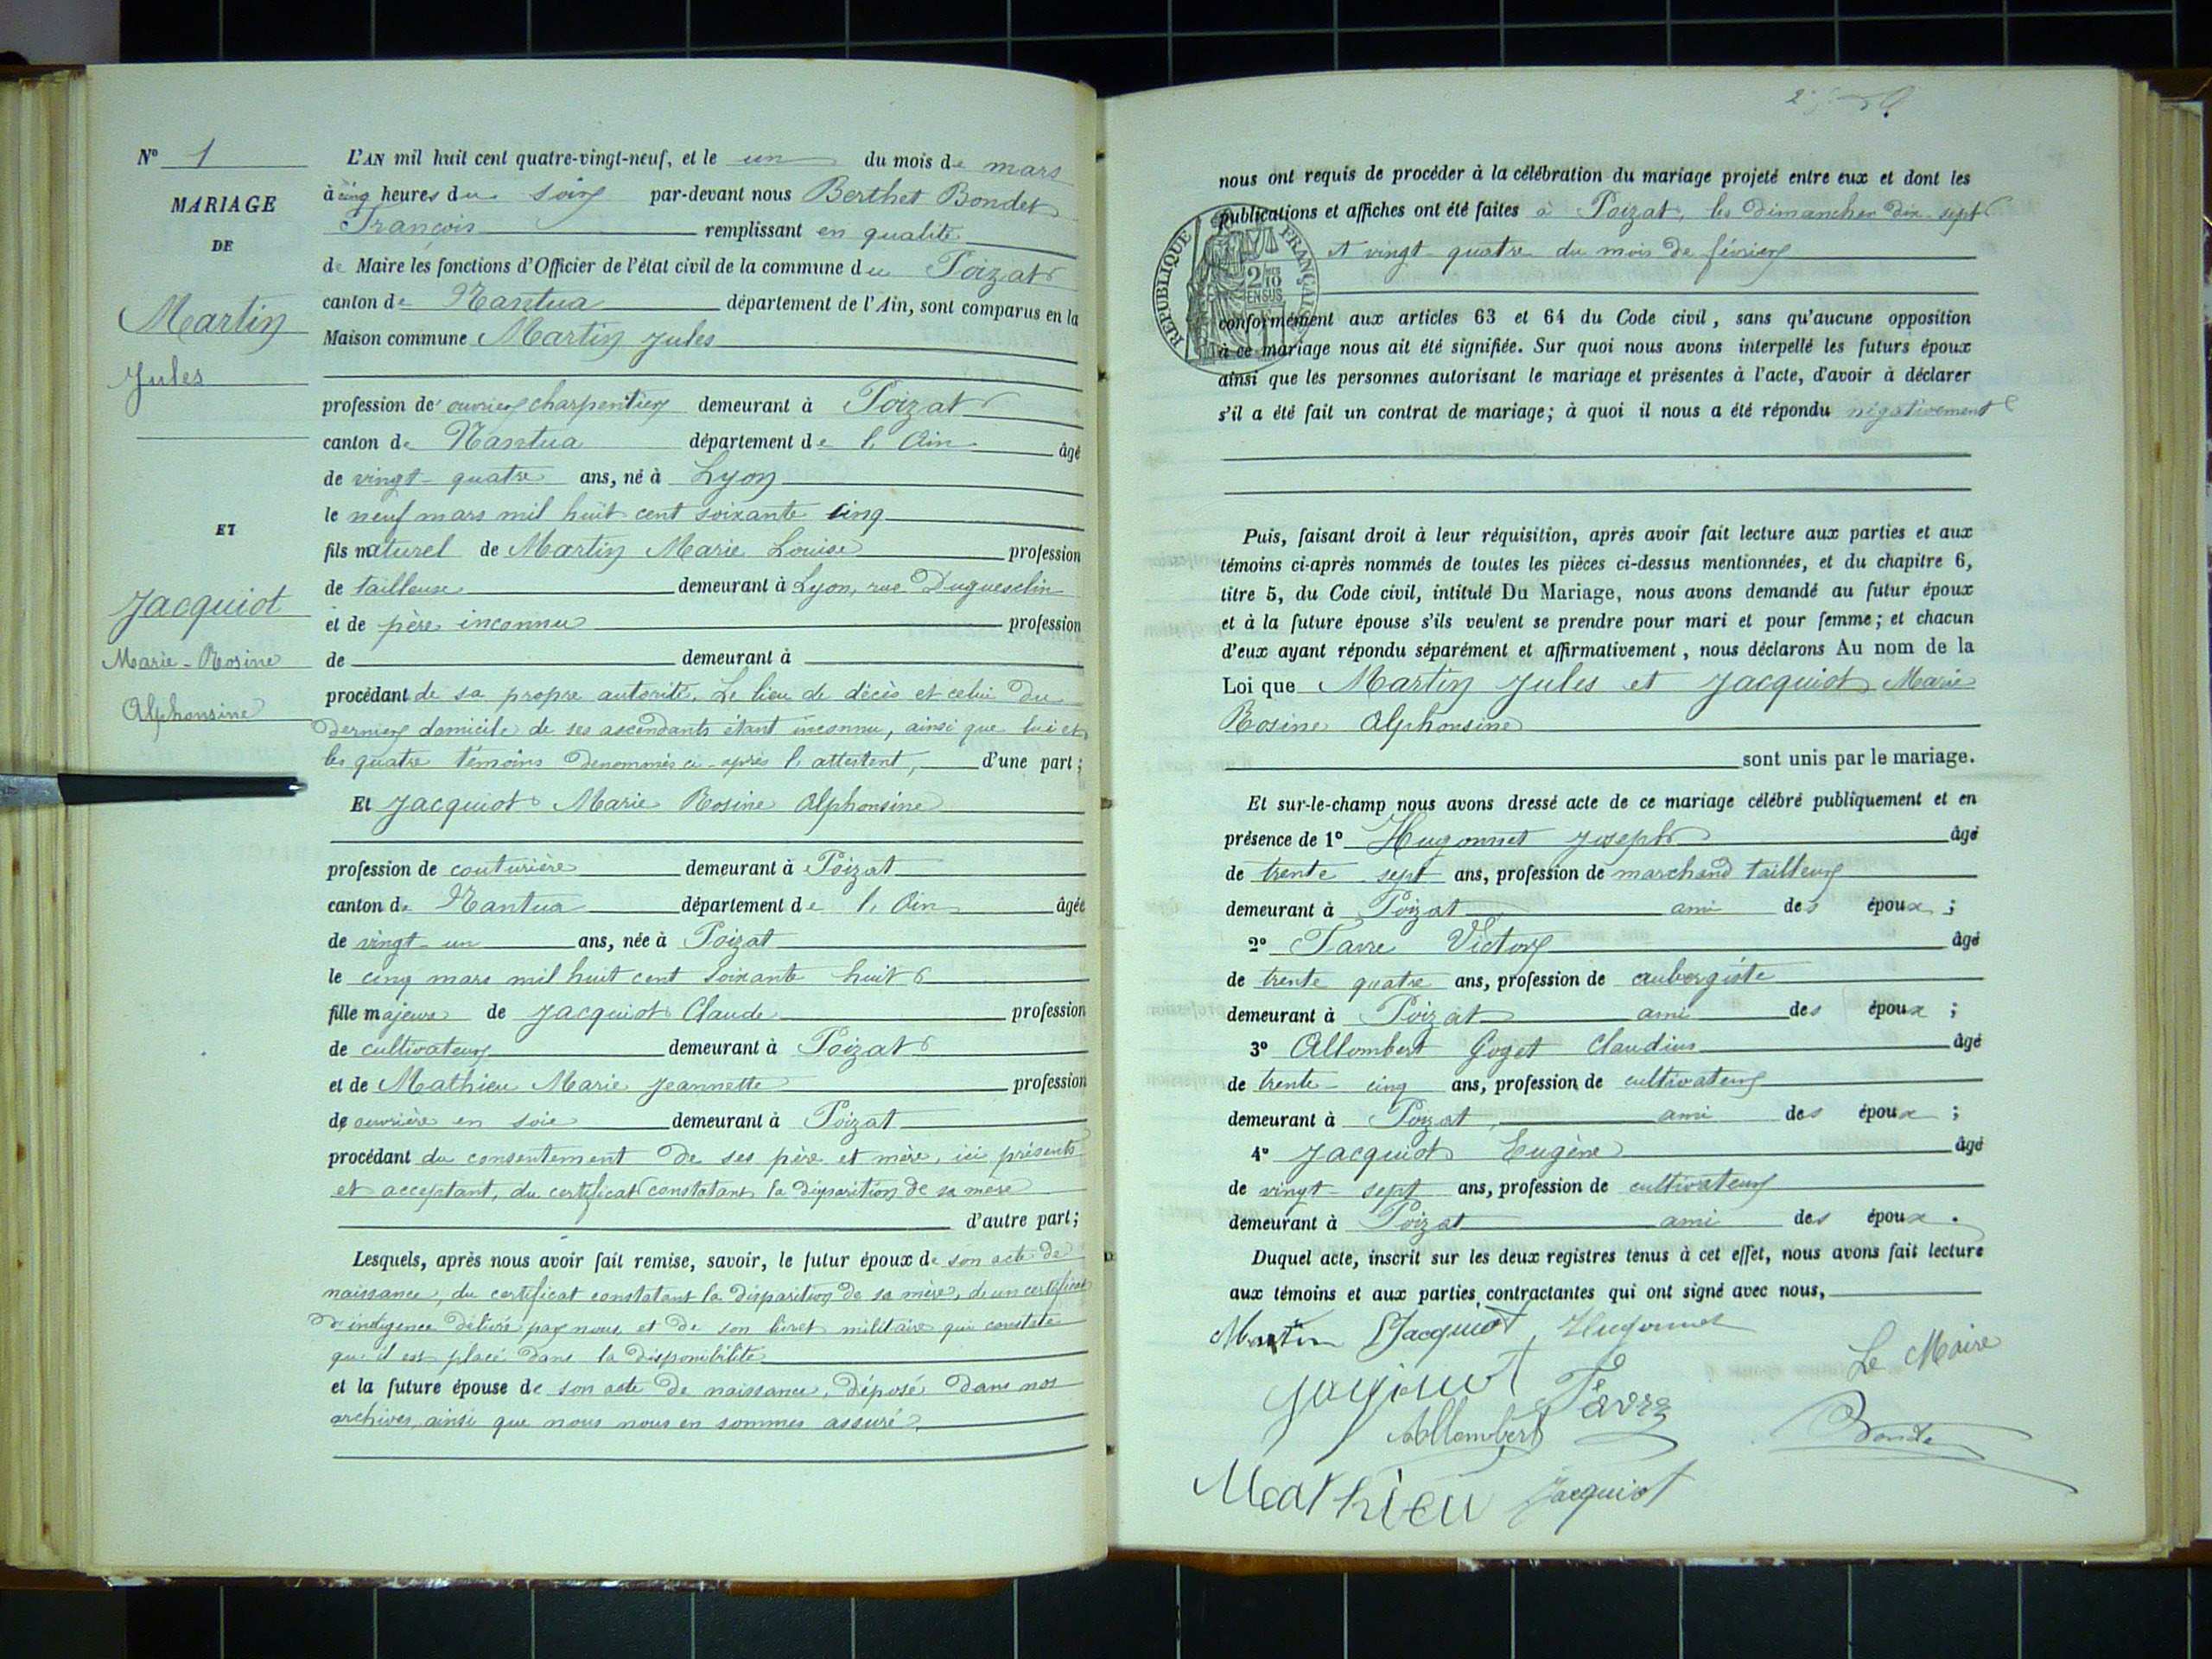 N° 1
MARIAGE
DE
Martin
Jules
ET
Jacquiot
Marie-Rosine
Alphonsine
L'AN mil huit cent quatre-vingt-neuf, et le un du mois de mars
à cinq heures du soir par-devant nous Berthet Bondet
François remplissant en qualité
de Maire les fonctions d'Officier de l'état civil de la commune du Poizat
canton de Nantua département de l'Ain, sont comparus en la
Maison commune Martin Jules
profession de ouvrier charpentier demeurant à Poizat
canton de Nantua département de l'Ain âgé
de vingt-quatre ans, né à Lyon
le neuf mars mil huit cent soixante cinq
fils naturel de Martin Marie Louise profession
de tailleuse demeurant à Lyon, rue Duguesclin
et de père inconnu profession
de demeurant à
procédant de sa propre autorité. Le lieu de décès et celui du
dernier domicile de ses ascendants étant inconnu, ainsi que lui et
les quatre témoins dénommés ci-après l'attestent, d'une part;
Et Jacquiot Marie Rosine Alphonsine
profession de couturière demeurant à Poizat
canton de Nantua département de l'Ain âgée
de vingt-un ans, née à Poizat
le cinq mars mil huit cent soixante huit
fille majeure de Jacquiot Claude profession
de cultivateur demeurant à Poizat
et de Mathieu Marie Jeannette profession
de ouvrière en soie demeurant à Poizat
procédant du consentement de ses père et mère, ici présents
et acceptant, du certificat constatant la disparition de sa mère
d'autre part;
Lesquels, après nous avoir fait remise, savoir, le futur époux de son acte de
naissance, du certificat constatant la disparition de sa mère, de un certificat
d'indigence délivré par nous, et de son livret militaire qui constate
qu'il est placé dans la disponibilité
et la future épouse de son acte de naissance, déposé dans nos
archives, ainsi que nous nous en sommes assuré.
nous ont requis de procéder à la célébration du mariage projeté entre eux et dont les
publications et affiches ont été faites à Poizat, les dimanches dix-sept
et vingt-quatre du mois de février
RÉPUBLIQUE FRANÇAISE
2/10 EN SUS
conformément aux articles 63 et 64 du Code civil, sans qu'aucune opposition
à ce mariage nous ait été signifiée. Sur quoi nous avons interpellé les futurs époux
ainsi que les personnes autorisant le mariage et présentes à l'acte, d'avoir à déclarer
s'il a été fait un contrat de mariage; à quoi il nous a été répondu négativement
Puis, faisant droit à leur réquisition, après avoir fait lecture aux parties et aux
témoins ci-après nommés de toutes les pièces ci-dessus mentionnées, et du chapitre 6,
titre 5, du Code civil, intitulé Du Mariage, nous avons demandé au futur époux
et à la future épouse s'ils veulent se prendre pour mari et pour femme; et chacun
d'eux ayant répondu séparément et affirmativement, nous déclarons Au nom de la
Loi que Martin Jules et Jacquiot Marie
Rosine Alphonsine
sont unis par le mariage.
Et sur-le-champ nous avons dressé acte de ce mariage célébré publiquement et en
présence de 1° Hugonnet Joseph âgé
de trente sept ans, profession de marchand tailleur
demeurant à Poizat ami des époux;
2° Favre Victor âgé
de trente quatre ans, profession de aubergiste
demeurant à Poizat ami des époux;
3° Allombert Goget Claudius âgé
de trente-cinq ans, profession de cultivateur
demeurant à Poizat, ami des époux;
4° Jacquiot Eugène âgé
de vingt-sept ans, profession de cultivateur
demeurant à Poizat ami des époux.
Duquel acte, inscrit sur les deux registres tenus à cet effet, nous avons fait lecture
aux témoins et aux parties contractantes qui ont signé avec nous,
Martin Jacquiot Hugonnet
Le Maire
Jacquiot Favre
Allombert Bondet
Mathieu Jacquiot